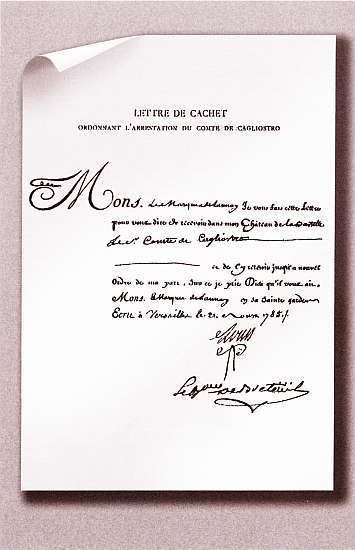 LETTRE DE CACHET
ORDONNANT L'ARRESTATION DU COMTE DE CAGLIOSTRO
Mons. Le Marquis de Launay Je vous fais cette Lettre
pour vous dire de recevoir dans mon Château de la Bastille
Le Sr. Comte de Cagliostro
et de l'y retenir jusqu'a nouvel
Ordre de ma part. Sur ce je prie Dieu qu'il vous ait
Mons. le Marquis de Launay en sa Sainte garde
Ecrit à Versailles le 21 1785
Louis
Le Bon De Breteüil